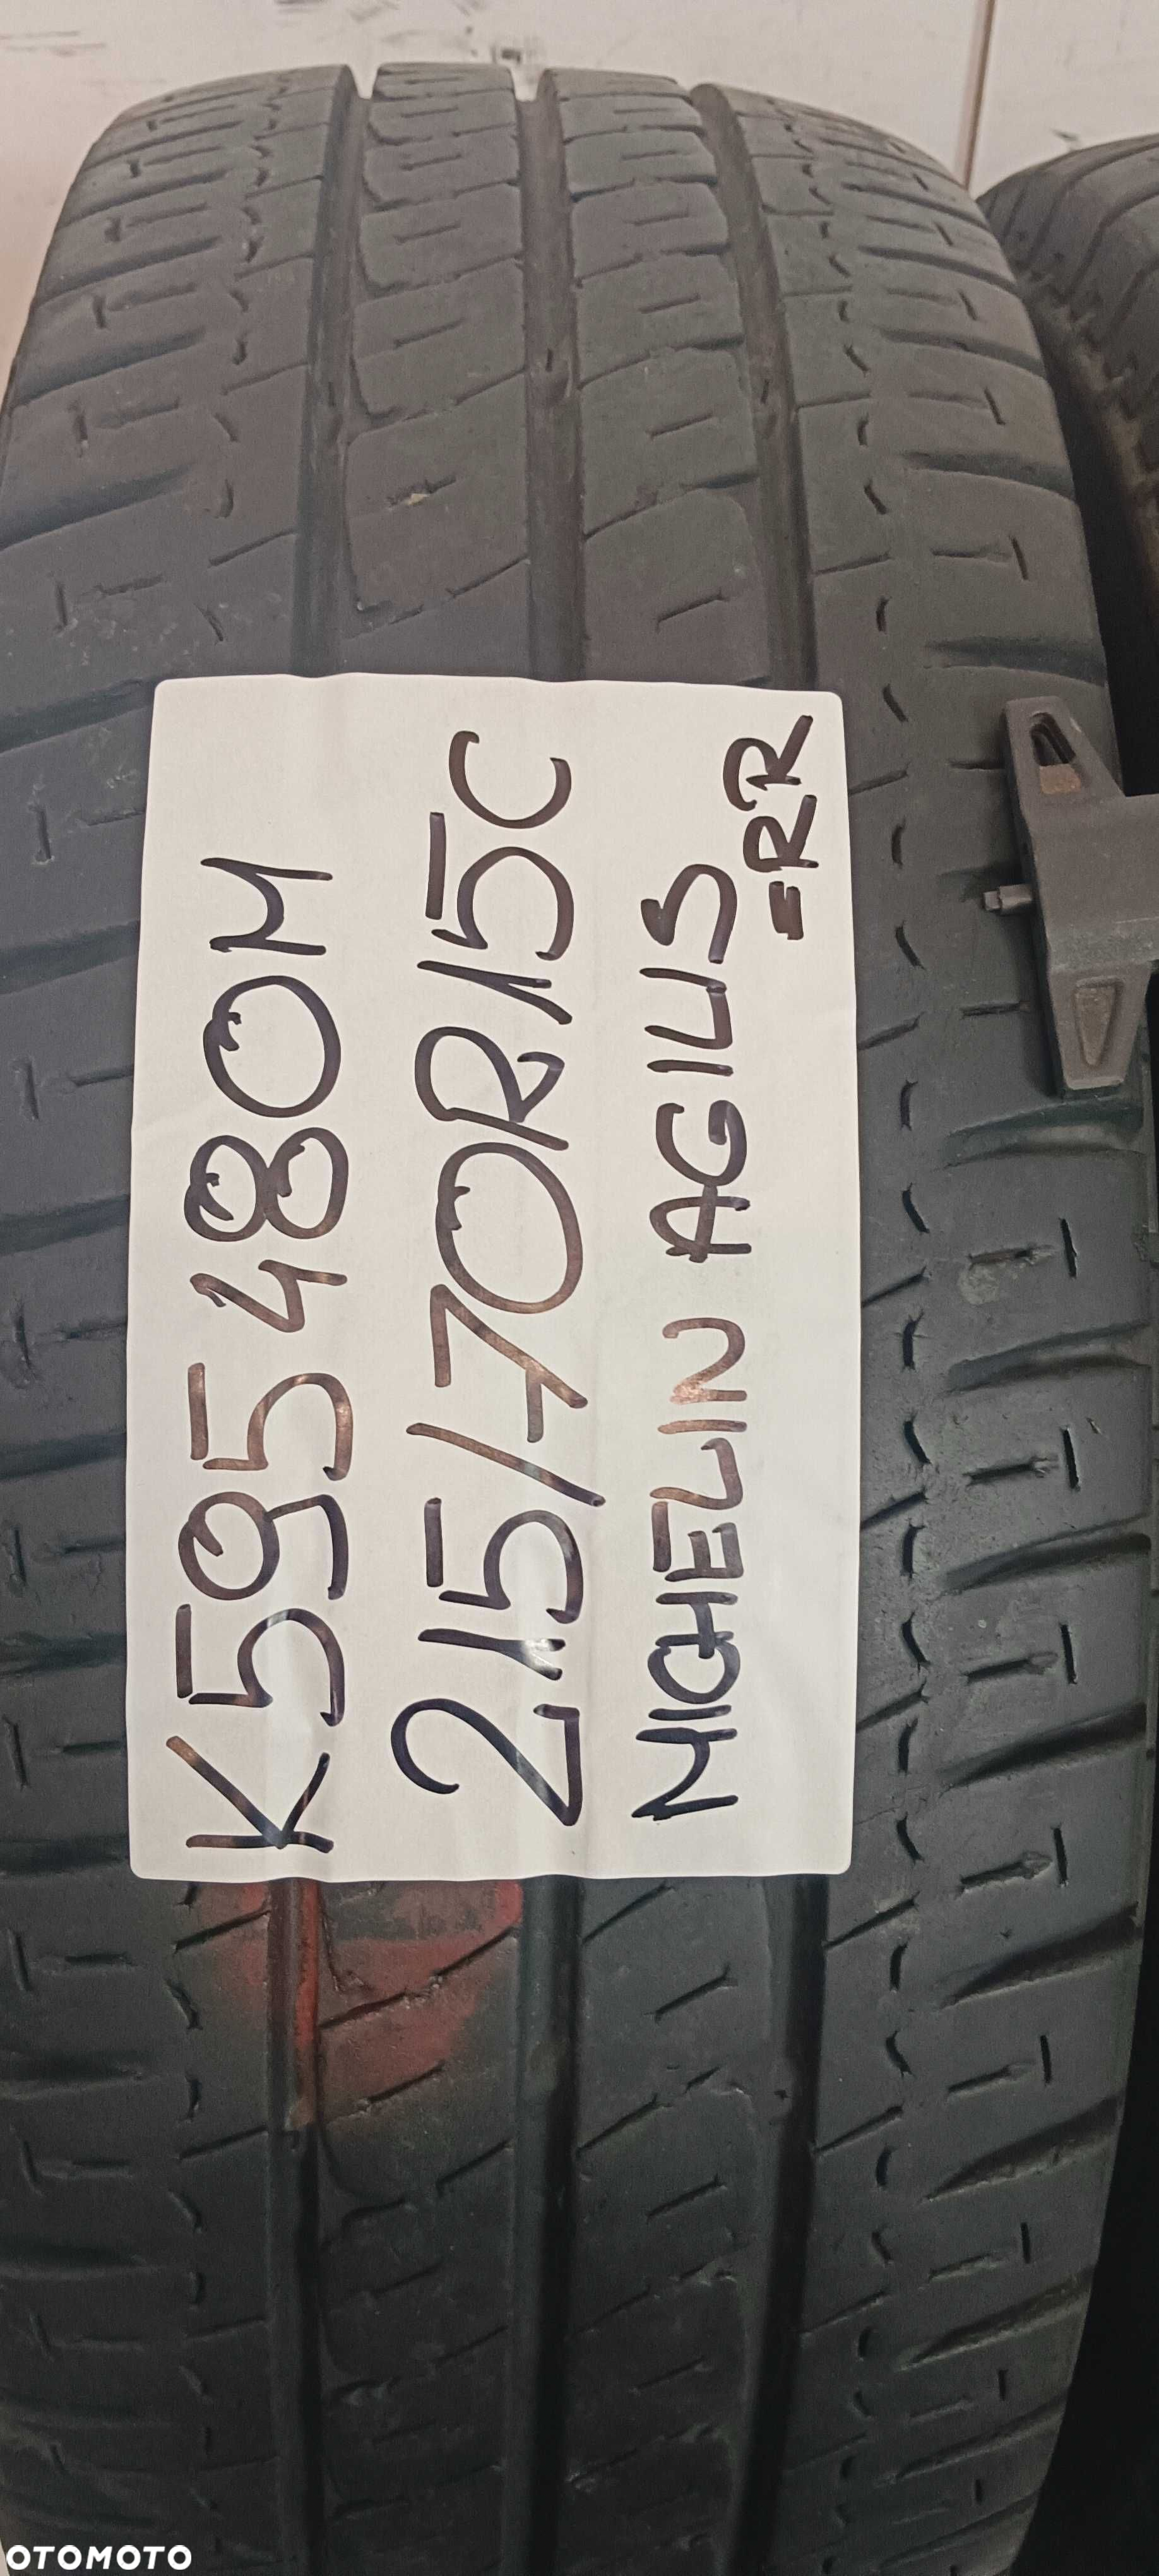 K595480M
215/70R15C
MICHELIN AGILIS
=RR
OTOMOTO